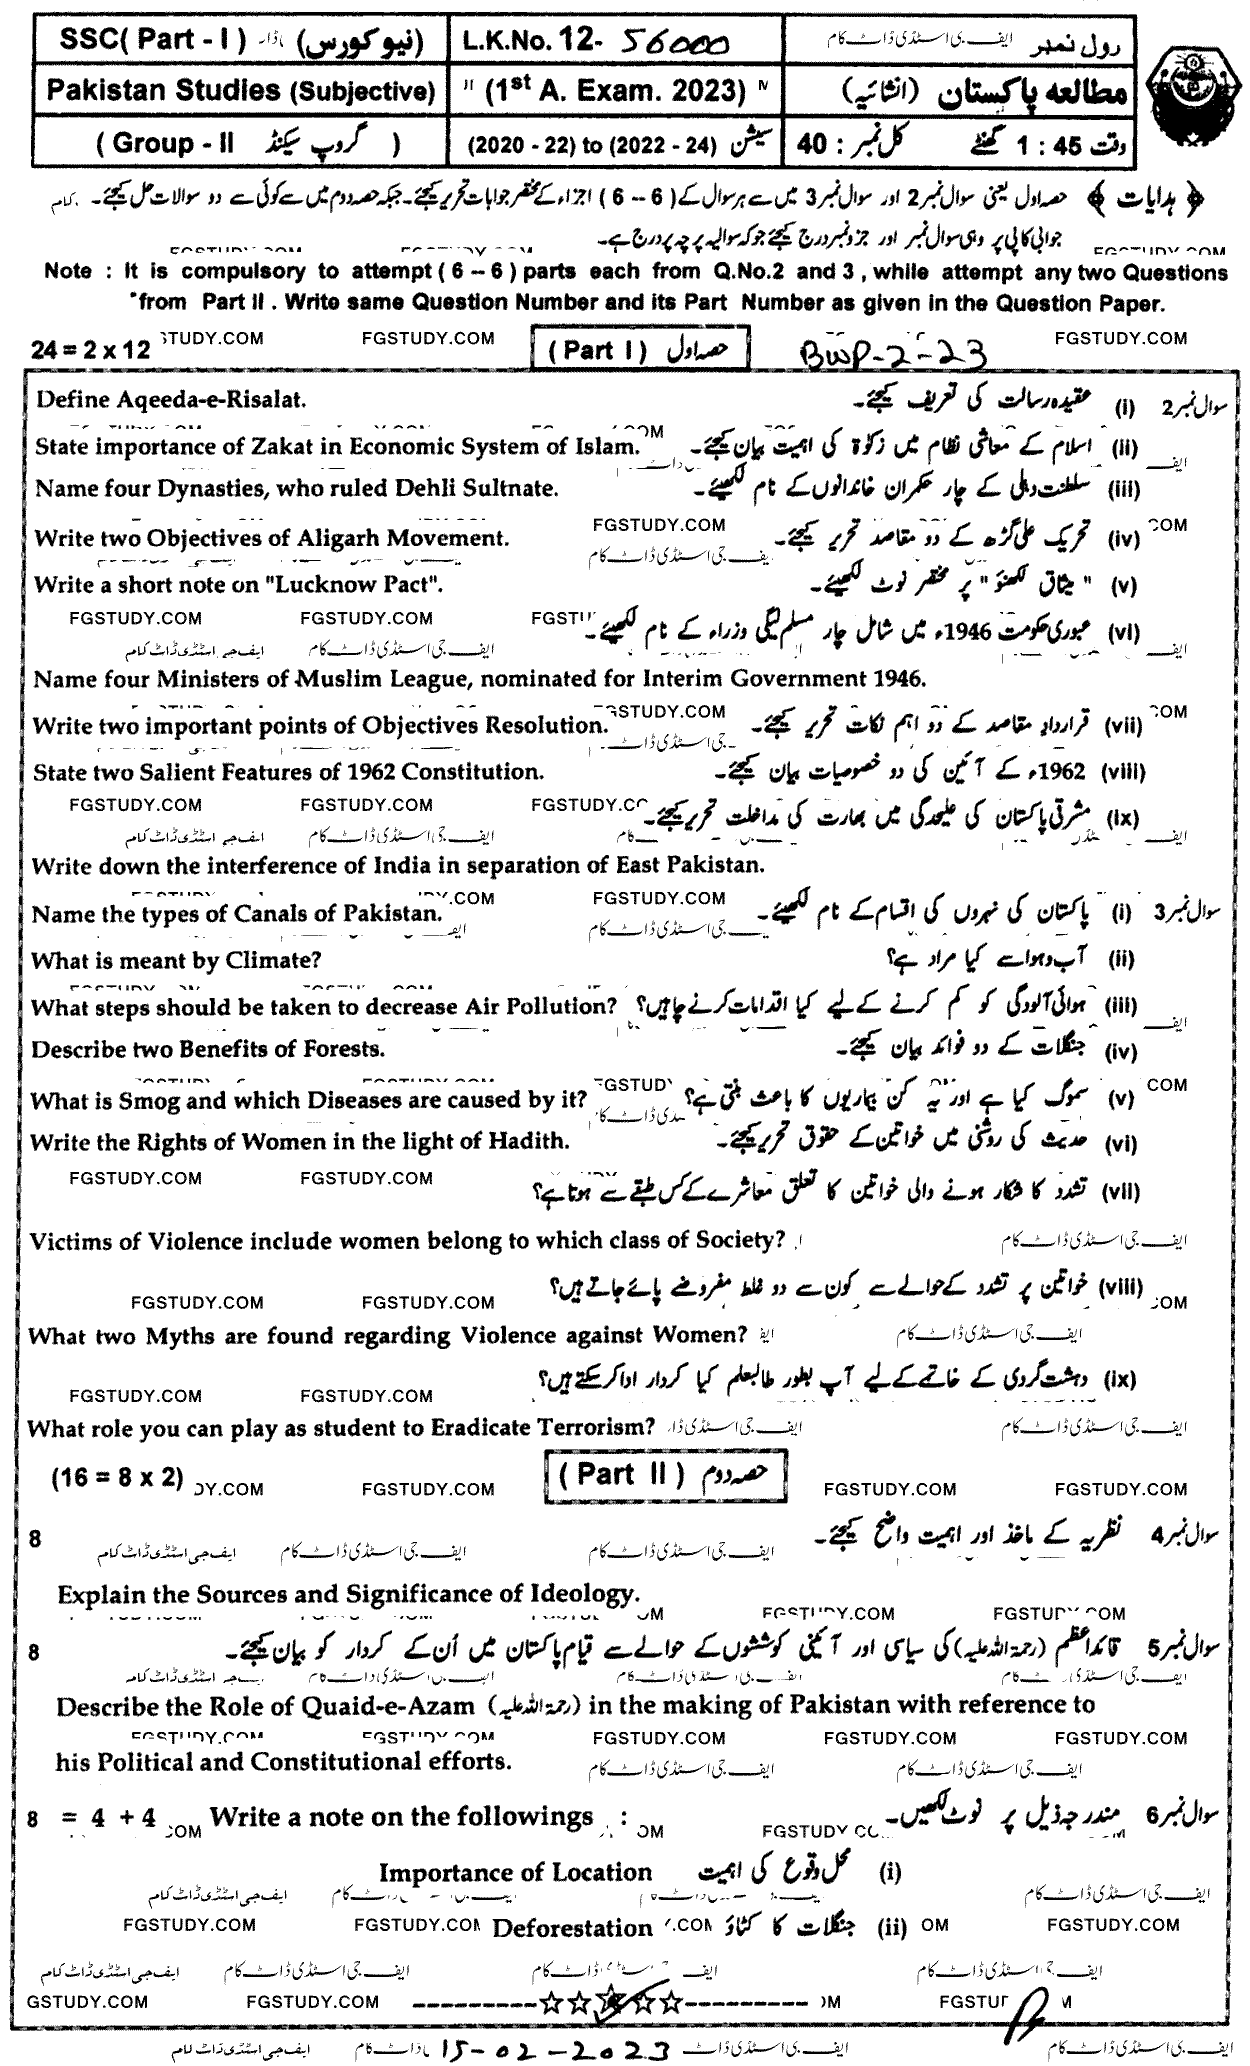 SSC( Part - I ) (نیو کورس)
L.K.No. 12- 56000
رول نمبر
Pakistan Studies (Subjective)
(1st A. Exam. 2023)
مطالعہ پاکستان (انشائیہ)
( Group - II گروپ سیکنڈ )
(2020 - 22) to (2022 - 24) سیشن
وقت 1 : 45 گھنٹے کل نمبر : 40
﴿ ہدایات ﴾ حصہ اول یعنی سوال نمبر 2 اور سوال نمبر 3 میں سے ہر سوال کے ( 6 – 6 ) اجزاء کے مختصر جوابات تحریر کیجئے۔ جبکہ حصہ دوم میں سے کوئی سے دو سوالات حل کیجئے۔
جوابی کاپی پر وہی سوال نمبر اور جزو نمبر درج کیجئے جو کہ سوالیہ پرچہ پر درج ہے۔
Note : It is compulsory to attempt ( 6 – 6 ) parts each from Q.No.2 and 3 , while attempt any two Questions
from Part II . Write same Question Number and its Part Number as given in the Question Paper.
24 = 2 x 12 FGSTUDY.COM ( Part I ) حصہ اول BWP-2-23 FGSTUDY.COM
Define Aqeeda-e-Risalat. سوال نمبر 2 (i) عقیدہ رسالت کی تعریف کیجئے۔
State importance of Zakat in Economic System of Islam. (ii) اسلام کے معاشی نظام میں زکوٰۃ کی اہمیت بیان کیجئے۔
Name four Dynasties, who ruled Dehli Sultnate. (iii) سلطنت دہلی کے چار حکمران خاندانوں کے نام لکھیئے۔
Write two Objectives of Aligarh Movement. FGSTUDY.COM (iv) تحریک علی گڑھ کے دو مقاصد تحریر کیجئے۔
Write a short note on "Lucknow Pact". (v) " میثاق لکھنؤ " پر مختصر نوٹ لکھیئے۔
FGSTUDY.COM FGSTUDY.COM (vi) عبوری حکومت 1946ء میں شامل چار مسلم لیگی وزراء کے نام لکھیئے۔
Name four Ministers of Muslim League, nominated for Interim Government 1946.
Write two important points of Objectives Resolution. (vii) قرارداد مقاصد کے دو اہم نکات تحریر کیجئے۔
State two Salient Features of 1962 Constitution. (viii) 1962ء کے آئین کی دو خصوصیات بیان کیجئے۔
FGSTUDY.COM FGSTUDY.COM (ix) مشرقی پاکستان کی علیحدگی میں بھارت کی مداخلت تحریر کیجئے۔
Write down the interference of India in separation of East Pakistan.
Name the types of Canals of Pakistan. FGSTUDY.COM سوال نمبر 3 (i) پاکستان کی نہروں کی اقسام کے نام لکھیئے۔
What is meant by Climate? (ii) آب و ہوا سے کیا مراد ہے؟
What steps should be taken to decrease Air Pollution? (iii) ہوائی آلودگی کو کم کرنے کے لیے کیا اقدامات کرنے چاہیں؟
Describe two Benefits of Forests. (iv) جنگلات کے دو فوائد بیان کیجئے۔
What is Smog and which Diseases are caused by it? (v) سموگ کیا ہے اور یہ کن بیماریوں کا باعث بنتی ہے؟
Write the Rights of Women in the light of Hadith. (vi) حدیث کی روشنی میں خواتین کے حقوق تحریر کیجئے۔
FGSTUDY.COM FGSTUDY.COM (vii) تشدد کا شکار ہونے والی خواتین کا تعلق معاشرے کے کس طبقے سے ہوتا ہے؟
Victims of Violence include women belong to which class of Society? ایف جی اسٹڈی ڈاٹ کام
FGSTUDY.COM FGSTUDY.COM (viii) خواتین پر تشدد کے حوالے سے کون سے دو غلط مفروضے پائے جاتے ہیں؟
What two Myths are found regarding Violence against Women? ایف جی اسٹڈی ڈاٹ کام
FGSTUDY.COM FGSTUDY.COM (ix) دہشت گردی کے خاتمے کے لیے آپ بطور طالبعلم کیا کردار ادا کر سکتے ہیں؟
What role you can play as student to Eradicate Terrorism? ایف جی اسٹڈی ڈاٹ کام
(16 = 8 x 2) FGSTUDY.COM ( Part II ) حصہ دوم FGSTUDY.COM FGSTUDY.COM
8 سوال نمبر 4 نظریہ کے ماخذ اور اہمیت واضح کیجئے۔
Explain the Sources and Significance of Ideology.
8 سوال نمبر 5 قائداعظم (رحمۃ اللہ علیہ) کی سیاسی اور آئینی کوششوں کے حوالے سے قیام پاکستان میں اُن کے کردار کو بیان کیجئے۔
Describe the Role of Quaid-e-Azam (رحمۃ اللہ علیہ) in the making of Pakistan with reference to
FGSTUDY.COM FGSTUDY.COM FGSTUDY.COM
his Political and Constitutional efforts. ایف جی اسٹڈی ڈاٹ کام ایف جی اسٹڈی ڈاٹ کام
8 = 4 + 4 Write a note on the followings : سوال نمبر 6 مندرجہ ذیل پر نوٹ لکھیں۔
Importance of Location (i) محل وقوع کی اہمیت
FGSTUDY.COM Deforestation (ii) جنگلات کا کٹاؤ FGSTUDY.COM
ایف جی اسٹڈی ڈاٹ کام ایف جی اسٹڈی ڈاٹ کام
FGSTUDY.COM ☆☆☆☆☆
15-02-2023